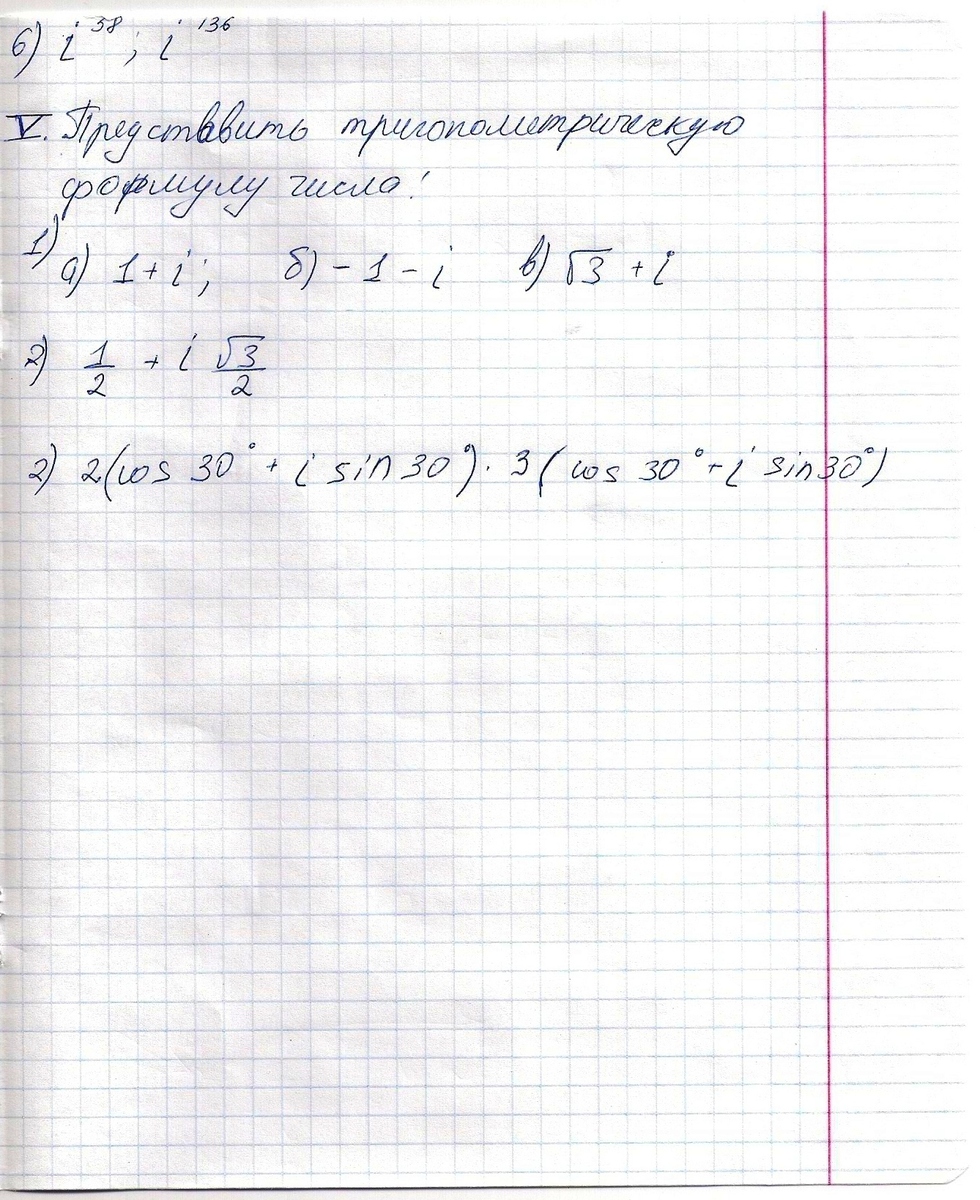 б) i³⁸ ; i¹³⁶
V. Представить тригонометрическую
формулу числа!
1) а) 1 + i ; б) - 1 - i в) √3 + i
2) 1/2 + i √3/2
2) 2(cos 30° + i sin 30°) · 3 (cos 30° + i sin 30°)